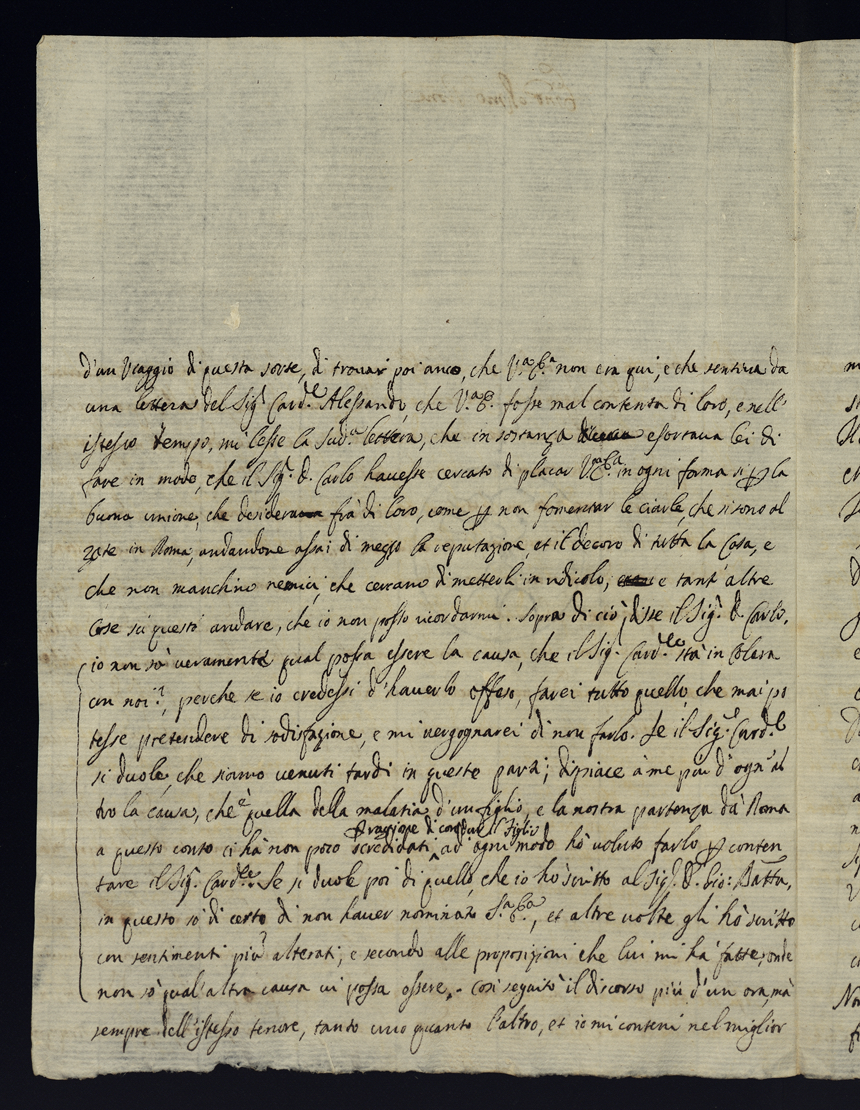 d'un viaggio di questa sorte, di trovar poi anco, che V.ª E.ª non era qui, e che sentiva da
una lettera del Sig.r Card.le Alessandro, che V.ª E. fosse mal contenta di loro, e nell'
istesso tempo, mi lesse la sud.ª lettera, che in sostanza esortava lei di
fare in modo, che il Sig.r D. Carlo havesse cercato di placar V.ª E.ª in ogni forma si ꝑ la
buona unione, che desidera frà di loro, come ꝑ non fomentar le ciarle, che si sono al
zate in Roma, andandone assai di mezzo la reputazione, et il decoro di tutta la Casa, e
che non manchino nemici, che cercano di metterli in ridicolo, e tant'altre
cose sù questo andare, che io non posso ricordarmi. Sopra di ciò, disse il Sig.r D. Carlo,
io non sò veramente qual possa essere la causa, che il Sig.r Card.le stà in colera
con noi?, perche se io credessi d'haverlo offeso, farei tutto quello, che mai po
tesse pretendere di sodisfazione, e mi vergognarei di non farlo. Se il Sig.r Card.le
si duole, che siamo venuti tardi in queste parti; dispiace à me più d'ogn'al
tro la causa, che è quella della malatia d'un figlio, e la nostra partenza da Roma
ꝑ cagione di condure il figlio
a questo conto ci hà non poco screditati, ad ogni modo hò voluto farlo ꝑ conten
tare il Sig.r Card.le. Se si duole poi di quello, che io hò scritto al Sig.r D. Gio: Batta,
in questo sò di certo di non haver nominato S.ª E.ª, et altre volte gli hò scritto
con sentimenti più alterati, e secondo alle proposizioni che lui mi hà fatte, onde
non sò qual'altra causa vi possa essere. Così seguitò il discorso più d'un ora, mà
sempre dell'istesso tenore, tanto uno quanto l'altro, et io mi conteni nel miglior